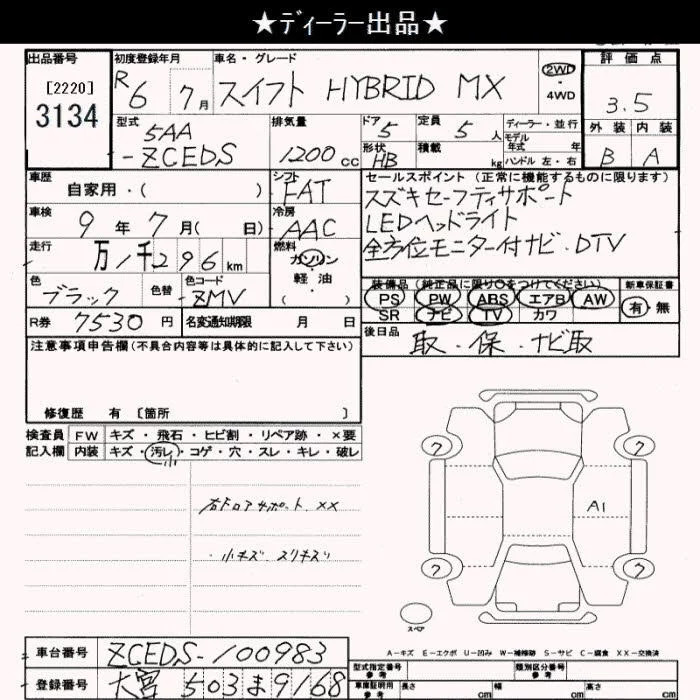 ★ディーラー出品★
出品番号 初度登録年月 車名・グレード 評価点
[2220]
3134
R6 7月 スイフト HYBRID MX 2WD・4WD 3.5
型式 排気量 ドア 定員 ディーラー・並行 外装 内装
5AA-ZCEDS 1200cc 5 5人 モデル年式 年 B A
形状 HB 積載 kg ハンドル 左・右
車歴 シフト セールスポイント (正常に機能するものに限ります)
自家用・( ) FAT スズキセーフティサポート
車検 冷房 LEDヘッドライト
9年7月( 日) AAC 全方位モニター付ナビ・DTV
走行 燃料
万1千296km ガソリン・軽油・( )
色 色替 色コード 装備品 (純正品に限り○をつけてください) 新車保証書
ブラック ZMV PS PW ABS エアB AW 有・無
SR ナビ TV カワ
R券 7530円 名変通知期限 月 日 後日品
取・保・ナビ取
注意事項申告欄(不具合内容等は具体的に記入して下さい)
修復歴 有 [箇所 ]
検査員 FW キズ・飛石・ヒビ割・リペア跡・×要
記入欄 内装 キズ・汚レ・コゲ・穴・スレ・キレ・破レ
小
右ドロアサポート ××
・小キズ スリキズ
ワ ワ
A1
ワ ワ
スペア
A-キズ E-エクボ U-凹み W-補修跡 S-サビ C-腐食 XX-交換済
車台番号 ZCEDS-100983 型式指定番号 参考 類別区分番号 参考
登録番号 大宮 503 ま 9168 車庫証明用 参考 長さ cm 幅 cm 高さ cm